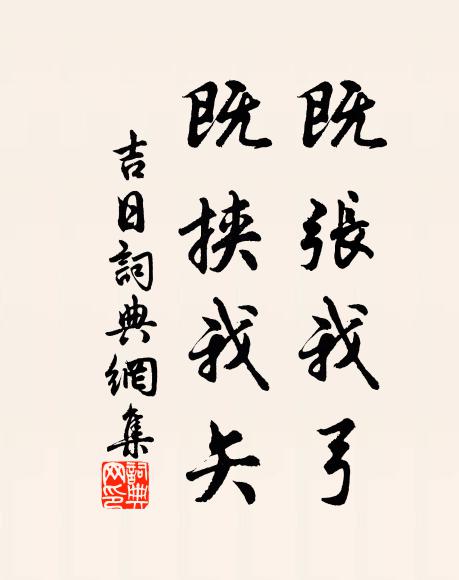 既張我弓
既挟我矢
吉日詞典網集
詞典网印